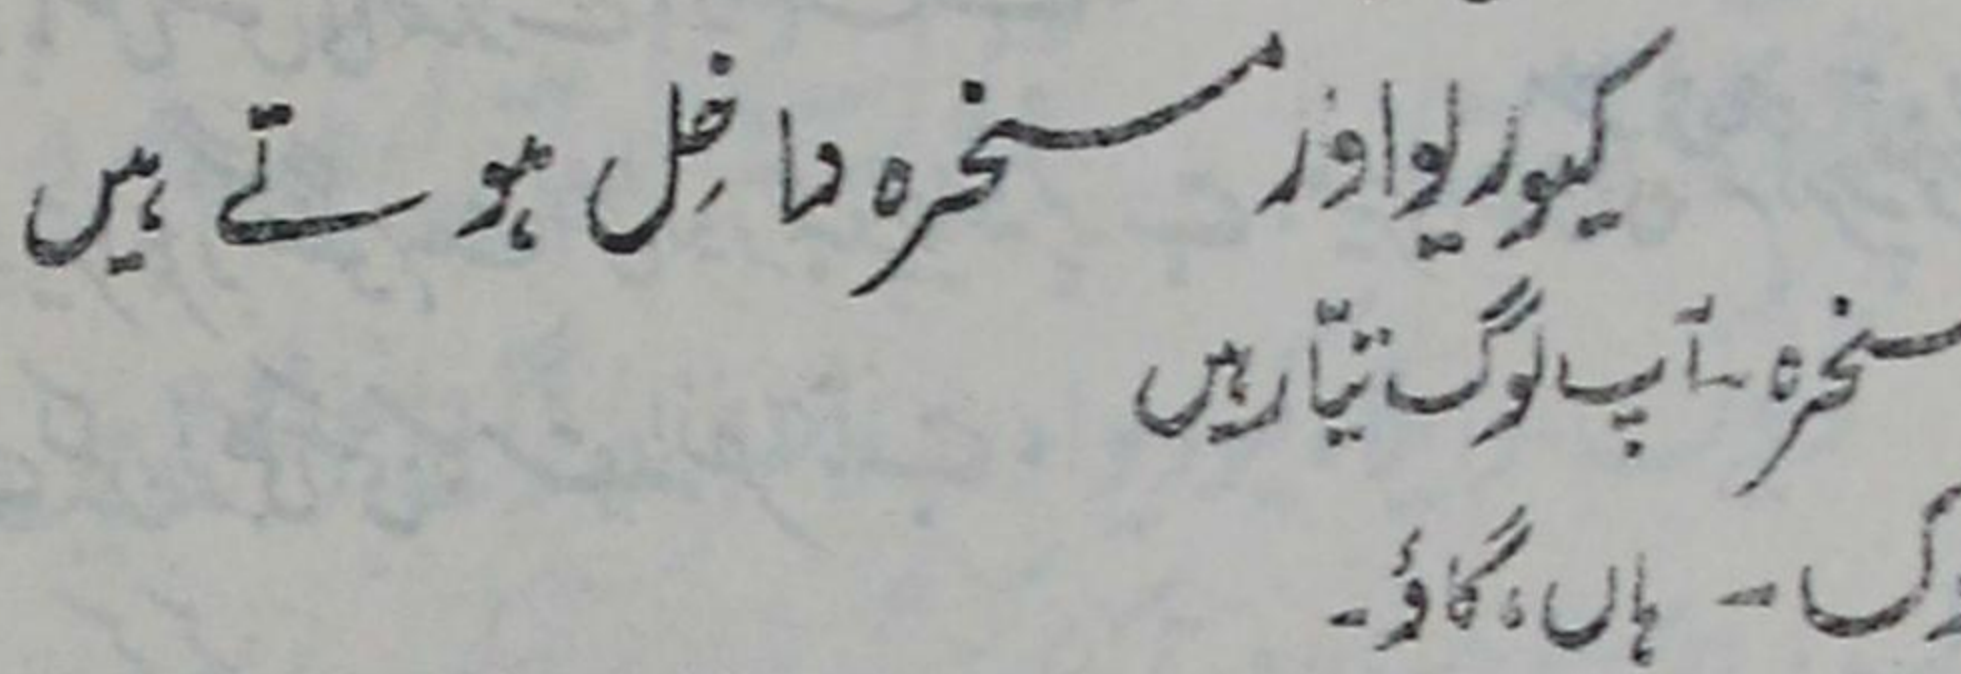 کیوریو اور مسخرہ داخل ہوتے ہیں
مسخرہ ۔ آپ لوگ تیّار ہیں
ہاں، گاؤ۔